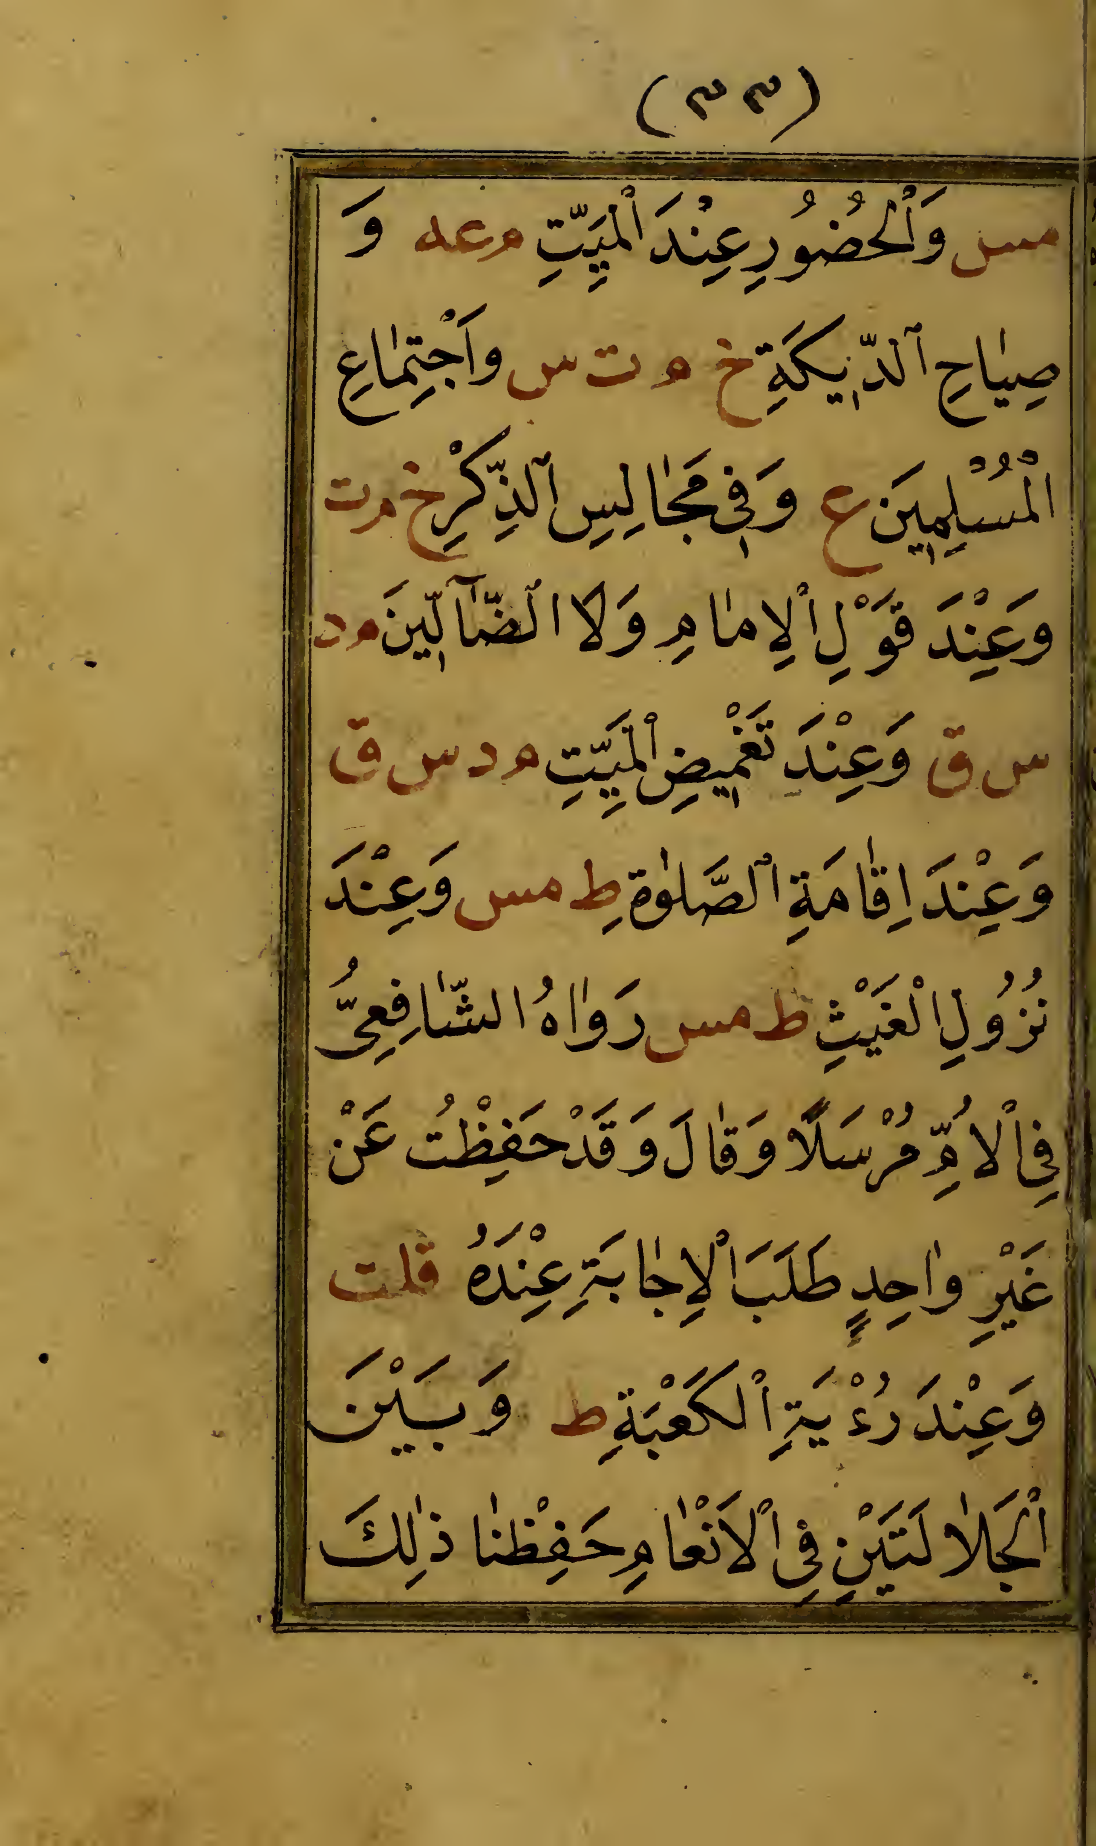 (٣٣)
مس وَالْحُضُورِ عِنْدَ الْمَيِّتِ م عه وَ
صِيَاحِ الدِّيكَةِ خ م ت س وَاجْتِمَاعِ
الْمُسْلِمِينَ ع وَفِي مَجَالِسِ الذِّكْرِ خ م ت
وَعِنْدَ قَوْلِ الْإِمَامِ وَلَا الضَّآلِّينَ م د
س ق وَعِنْدَ تَغْمِيضِ الْمَيِّتِ م د س ق
وَعِنْدَ اِقَامَةِ الصَّلٰوةِ ط مس وَعِنْدَ
نُزُولِ الْغَيْثِ ط مس رَوَاهُ الشَّافِعِيُّ
فِي الْاُمِّ مُرْسَلًا وَقَالَ وَقَدْ حَفِظْتُ عَنْ
غَيْرِ وَاحِدٍ طَلَبَ الْإِجَابَةِ عِنْدَهُ قلت
وَعِنْدَ رُءْيَةِ الْكَعْبَةِ ط وَبَيْنَ
الْجَلَالَتَيْنِ فِي الْاَنْعَامِ حَفِظْنَا ذٰلِكَ